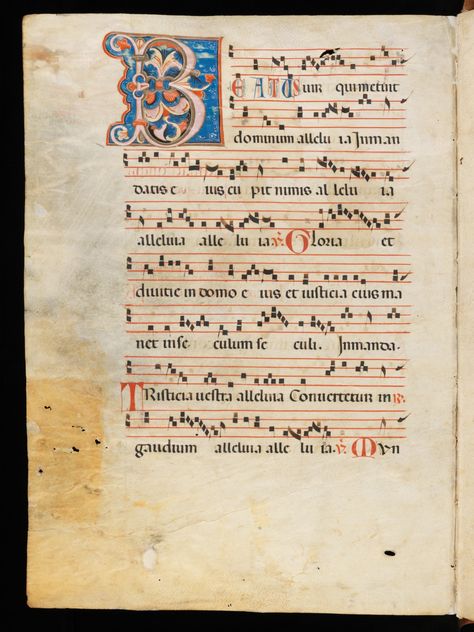 BEATUS uir qui metuit
dominum allelu ia In man
datis e ius cu pit nimis al lelu ia
alleluia alle lu ia. ℣. Gloria et
diuitie in domo e ius et iusticia eius ma
net in se culum se culi. In manda.
TRisticia uestra alleluia Conuertetur in ℟.
gaudium alleluia alle lu ia. ℣. Mun